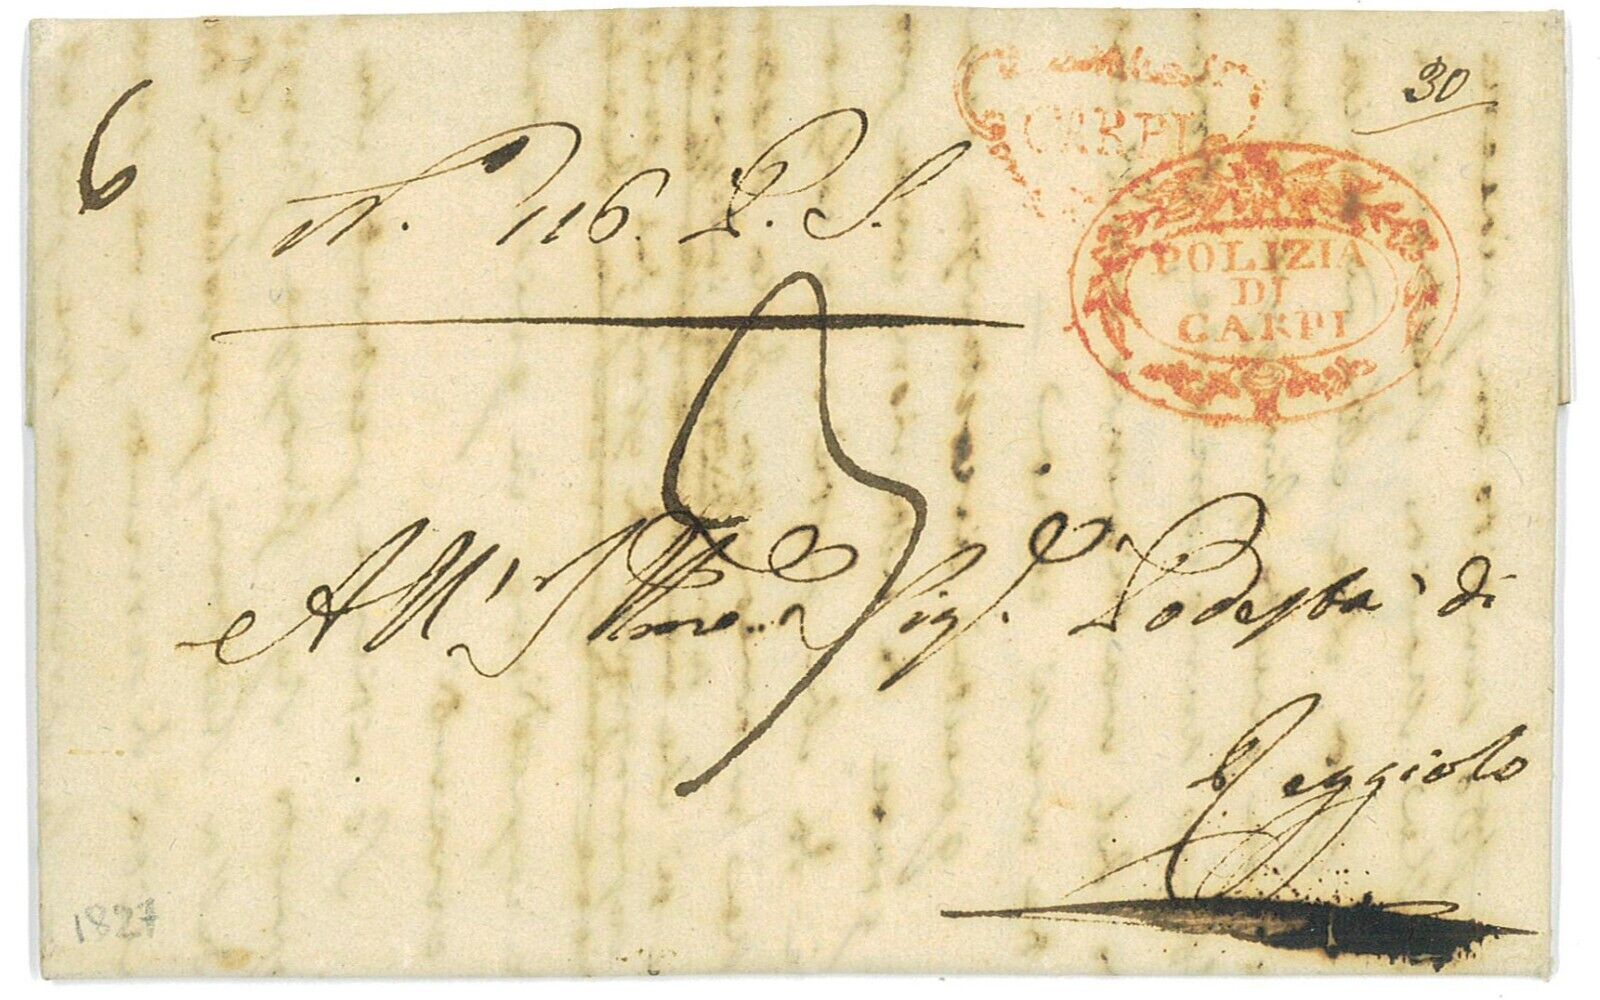 30
CARPI
6
N. 116. P. S.
POLIZIA
DI
CARPI
All' Illmo.. Sigr. Podestà di
Reggiolo
1827